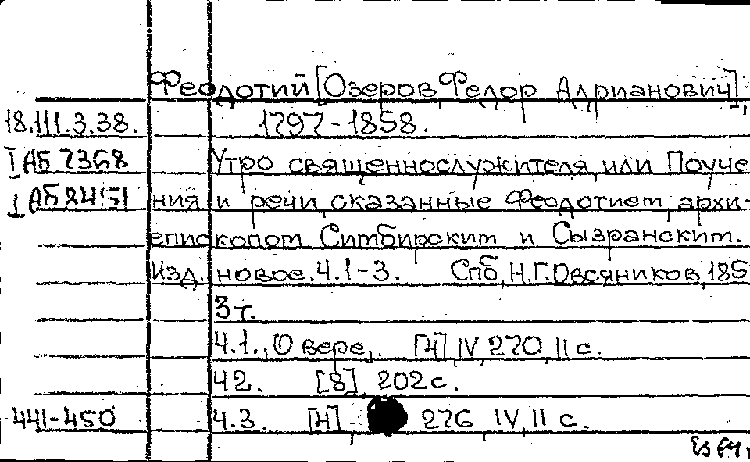 Феодотий [Озеров, Федор Адрианович],
18.111.3.38. 1797-1858.
I АБ 7368 Утро священнослужителя, или Поуче
I АБ 8415I ния и речи, сказанные Феодотием, архи-
епископом Симбирским и Сызранским.
Изд. новое. Ч.1-3. Спб, Н.Г.Овсяников, 185
3т.
Ч.1. О вере. [4], IV, 270, II с.
Ч2. [8], 202с.
441-450 Ч.3. [4], 276, IV, II с.